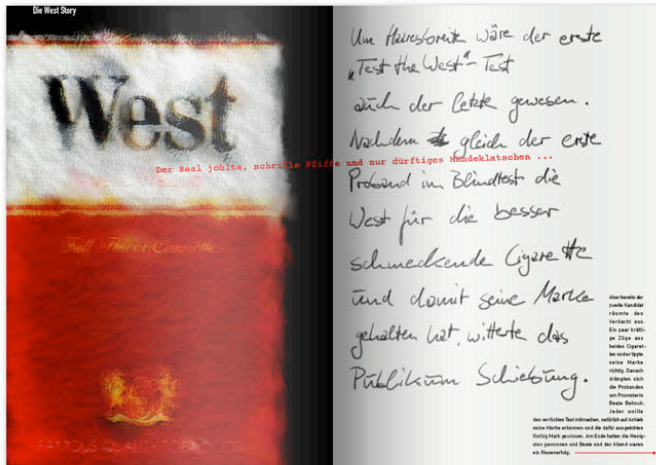 Die West Story
West
Full Flavor Cigarettes
Der Saal johlte, schrille Pfiffe und nur dürftiges Händeklatschen ...
Um Haaresbreite wäre der erste
„Test the West"-Test
auch der letzte gewesen.
Nachdem gleich der erste
Proband im Blindtest die
West für die besser
schmeckende Cigarette
und damit seine Marke
gehalten hat, witterte das
Publikum Schiebung.
Aber bereits der
zweite Kandidat
räumte den
Verdacht aus.
Ein paar kräfti-
ge Züge aus
beiden Cigaret-
ten und er tippte
seine Marke
richtig. Danach
drängten sich
die Probanden
um Promoterin
Beate Behnck.
Jeder wollte
den verrückten Test mitmachen, natürlich auf Anhieb
seine Marke erkennen und die dafür ausgelobten
fünfzig Mark gewinnen. Am Ende haben die Wenig-
sten gewonnen und Beate und der Abend waren
ein Riesenerfolg.